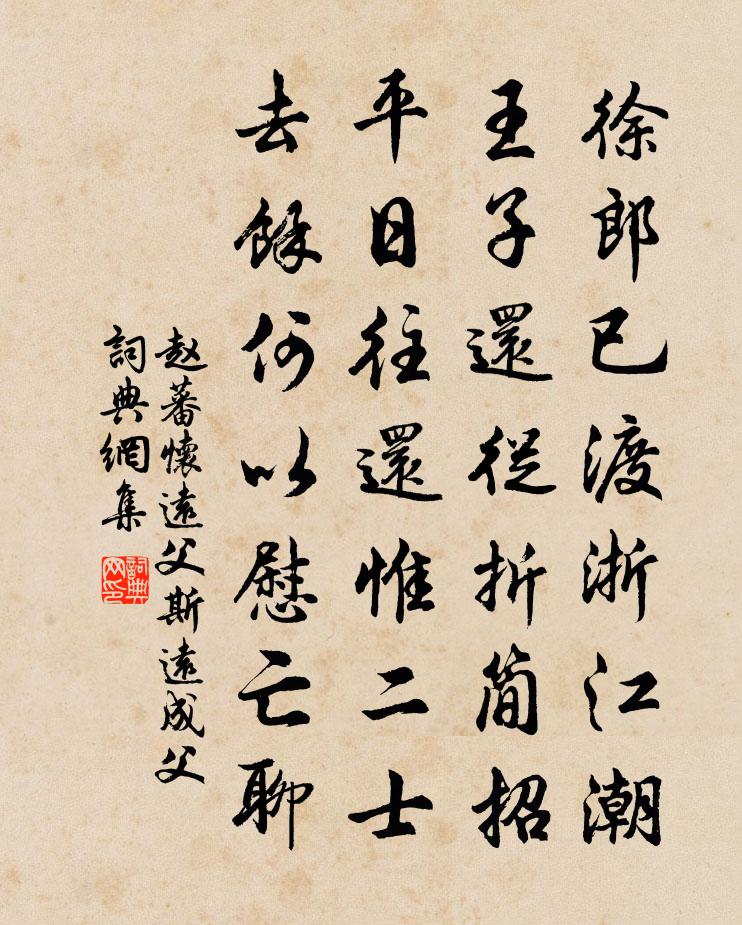 徐郎已渡浙江潮
王子還從折簡招
平日往還惟二士
去餘何以慰亡聊
赵蕃懷遠父斯遠成父
詞典網集
詞典网印